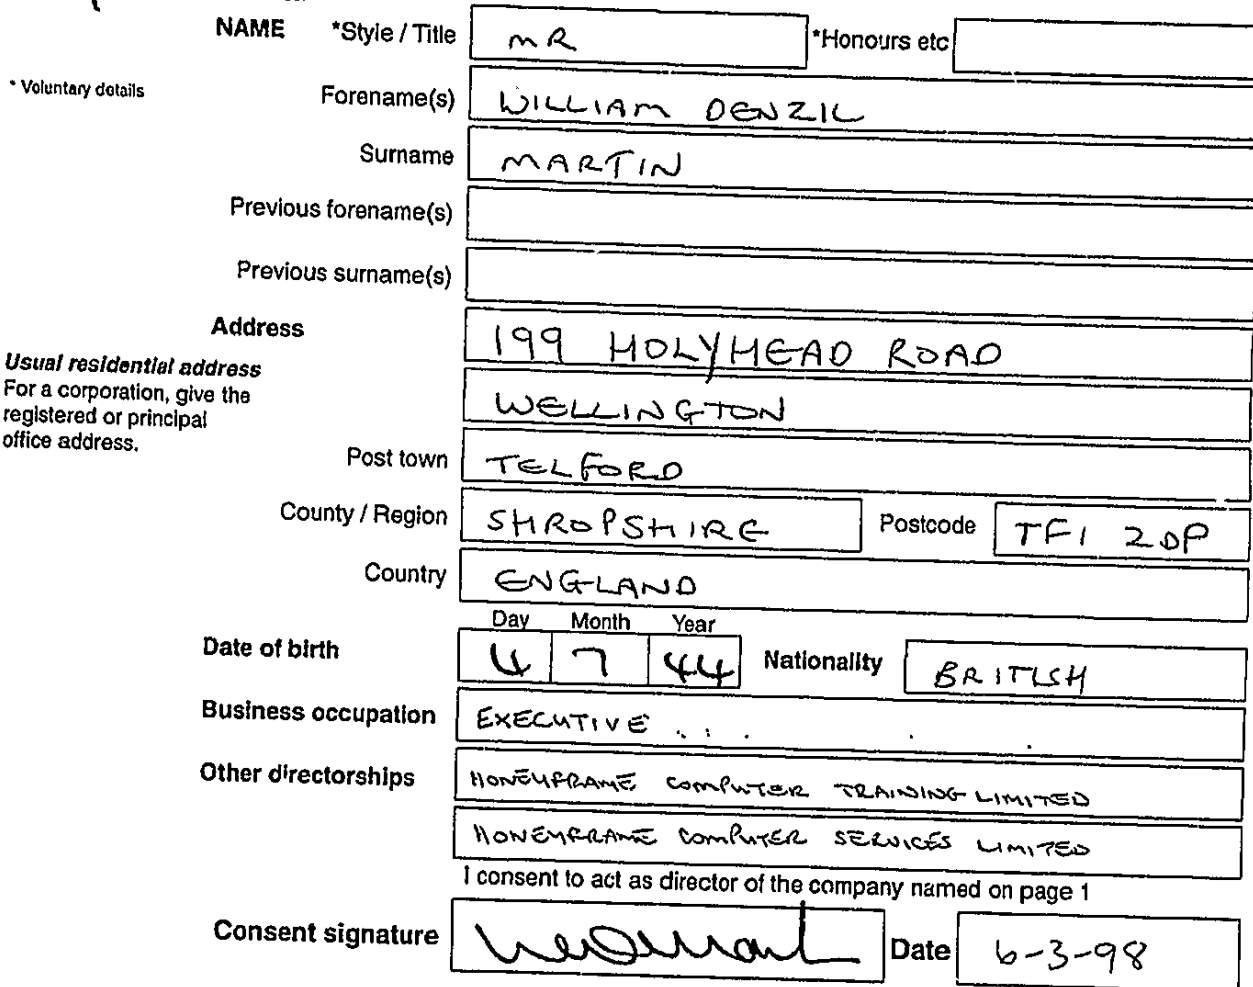 NAME *Style / Title MR *Honours etc
* Voluntary details Forename(s) WILLIAM DENZIL
Surname MARTIN
Previous forename(s)
Previous surname(s)
Address 199 HOLYHEAD ROAD
Usual residential address
For a corporation, give the
registered or principal
office address.
WELLINGTON
Post town TELFORD
County / Region SHROPSHIRE Postcode TF1 2DP
Country ENGLAND
Day Month Year
Date of birth 4 7 44 Nationality BRITISH
Business occupation EXECUTIVE
Other directorships HONEYFRAME COMPUTER TRAINING LIMITED
HONEYFRAME COMPUTER SERVICES LIMITED
I consent to act as director of the company named on page 1
Consent signature Date 6-3-98